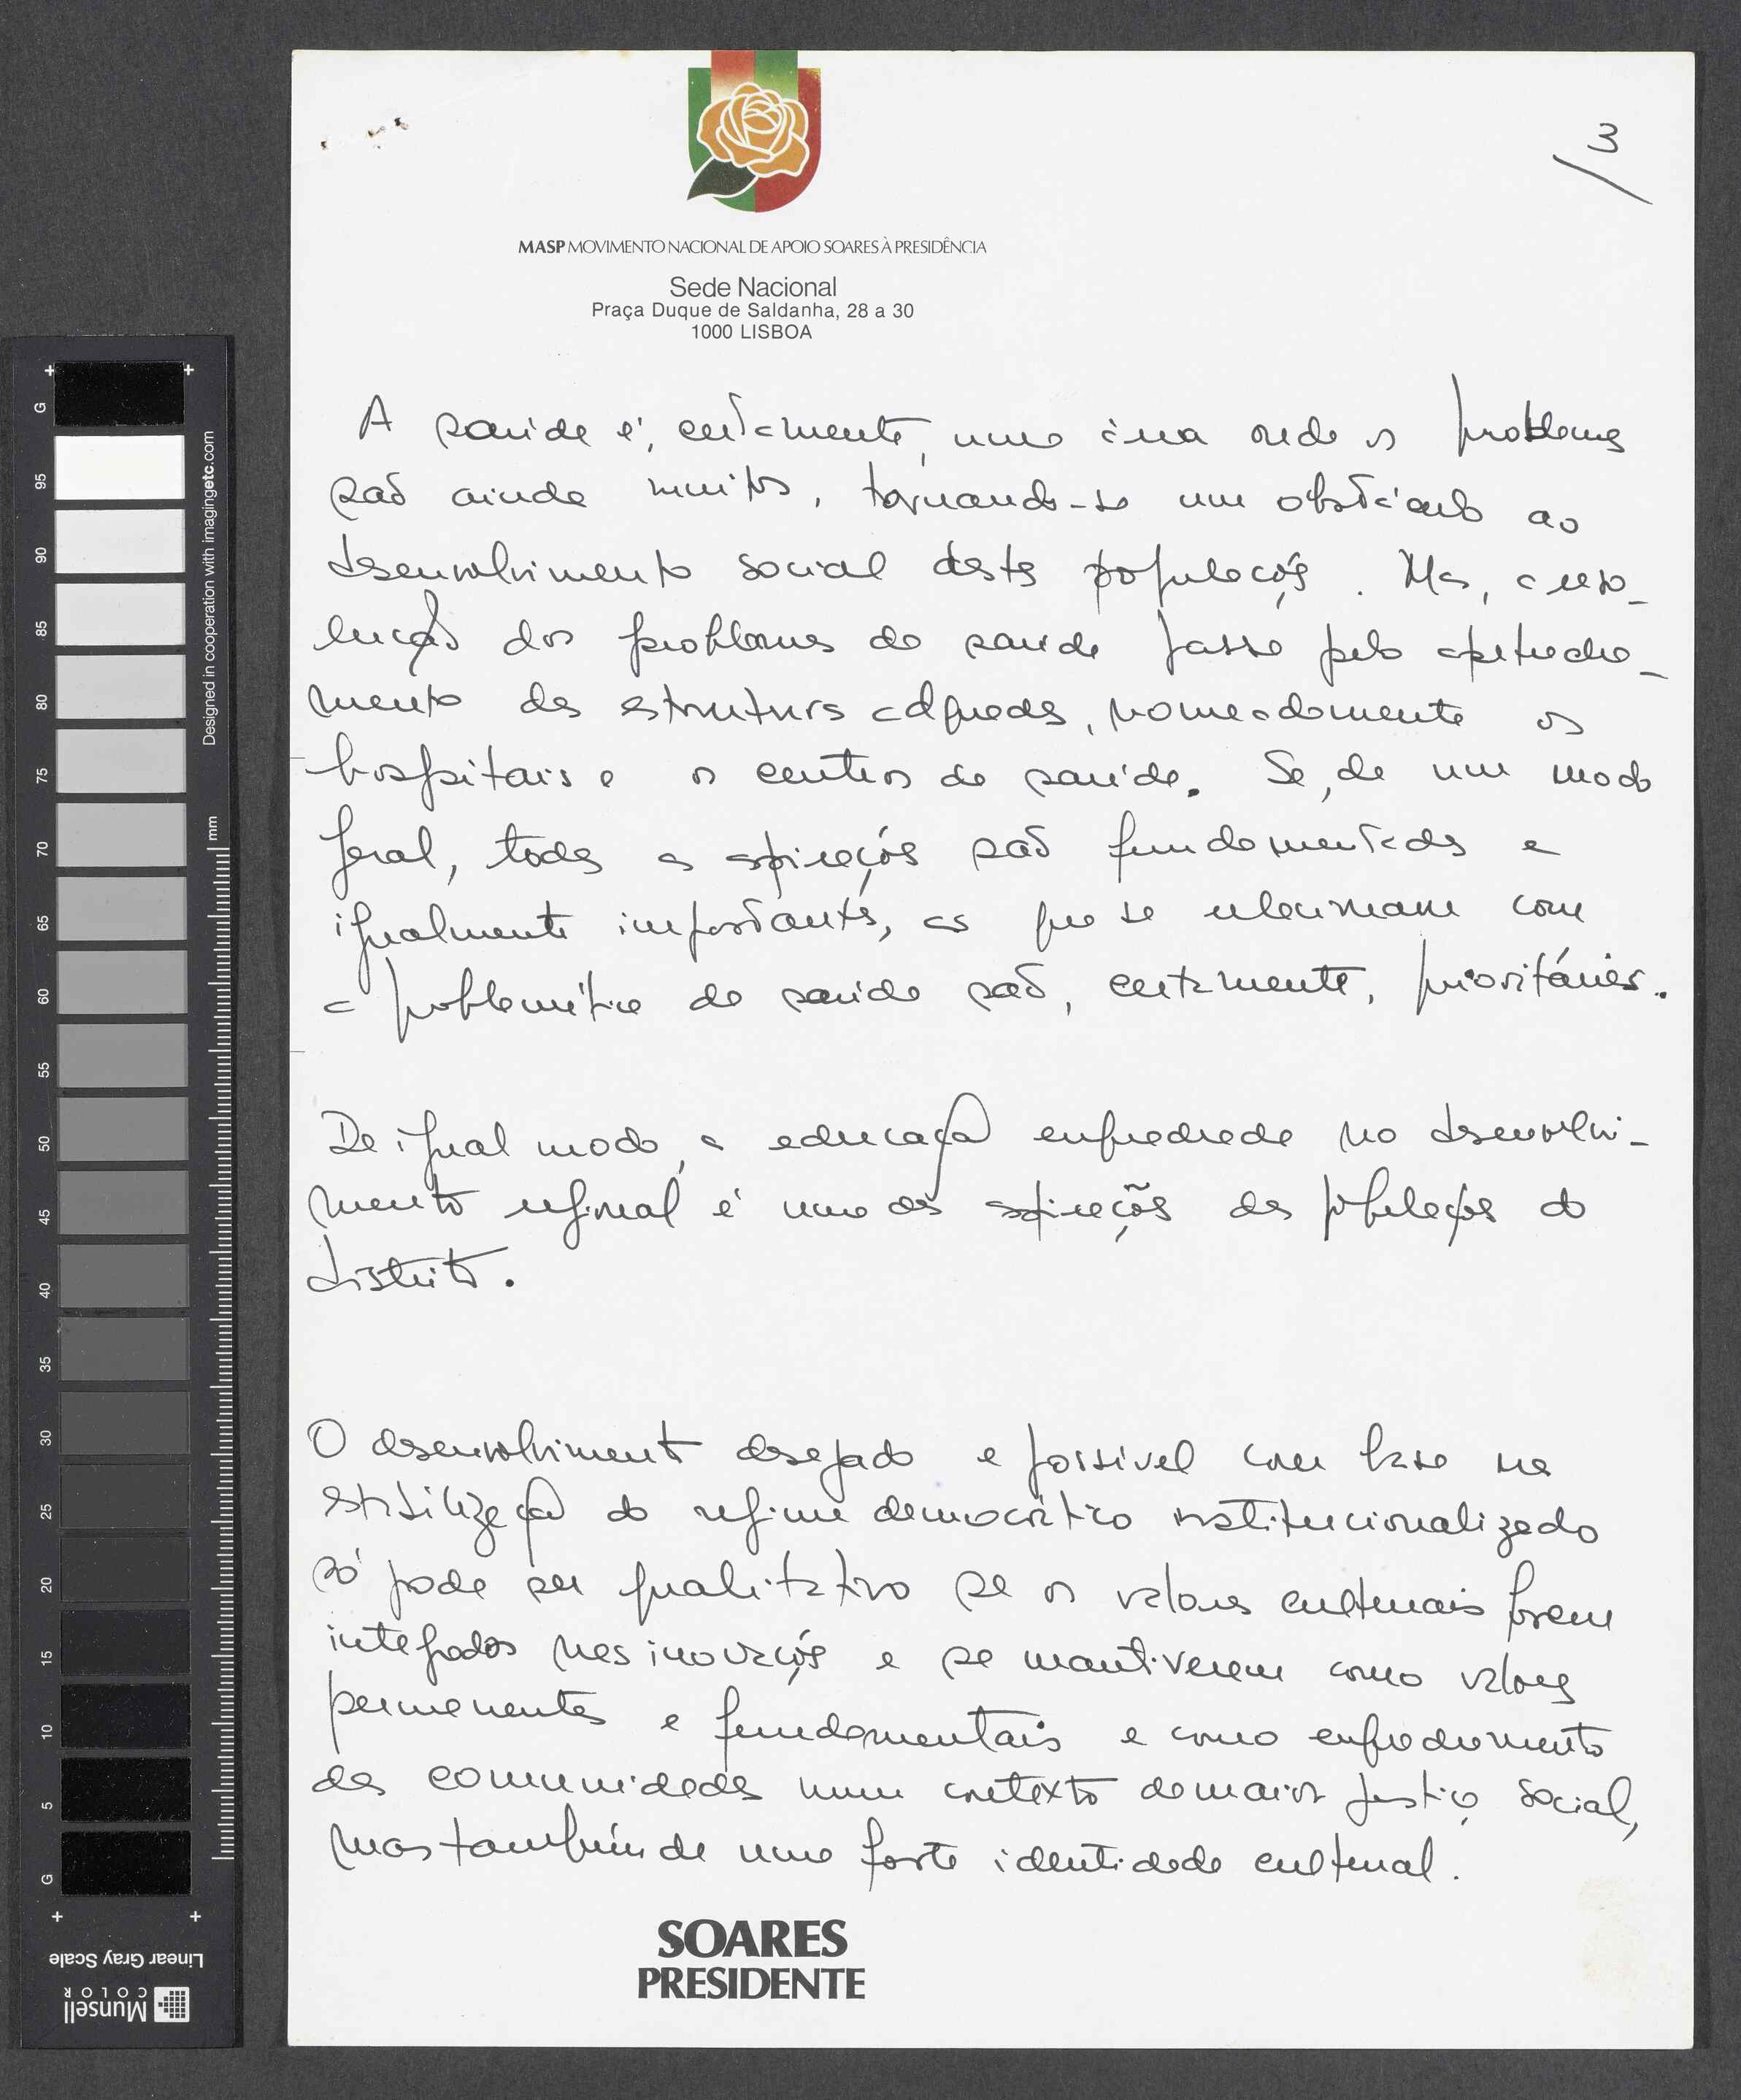 3
MASP MOVIMENTO NACIONAL DE APOIO SOARES À PRESIDÊNCIA
Sede Nacional
Praça Duque de Saldanha, 28 a 30
1000 LISBOA
A saúde é, certamente, uma área onde os problemas
são ainda muitos, tornando-se um obstáculo ao
desenvolvimento social destas populações. Mas, a reso-
lução dos problemas de saúde passa pelo apetrecha-
mento das estruturas adequadas, nomeadamente os
hospitais e os centros de saúde. Se, de um modo
geral, todas as aspirações são fundamentadas e
igualmente importantes, as que se relacionam com
a problemática da saúde são, certamente, prioritárias.
De igual modo, a educação enquadrada no desenvolvi-
mento regional é uma das aspirações das populações do
distrito.
O desenvolvimento desejado e possível com base na
estabilização do regime democrático institucionalizado
só pode ser qualitativo se os valores culturais forem
integrados nas inovações e se mantiverem como valores
permanentes e fundamentais e como enquadramento
das comunidades num contexto de maior justiça social,
mas também de uma forte identidade cultural.
SOARES
PRESIDENTE
G
95
90
85
80
75
70
65
60
55
50
45
40
35
30
25
20
15
10
5
G
mm
Designed in cooperation with imagingetc.com
Linear Gray Scale
Munsell
COLOR